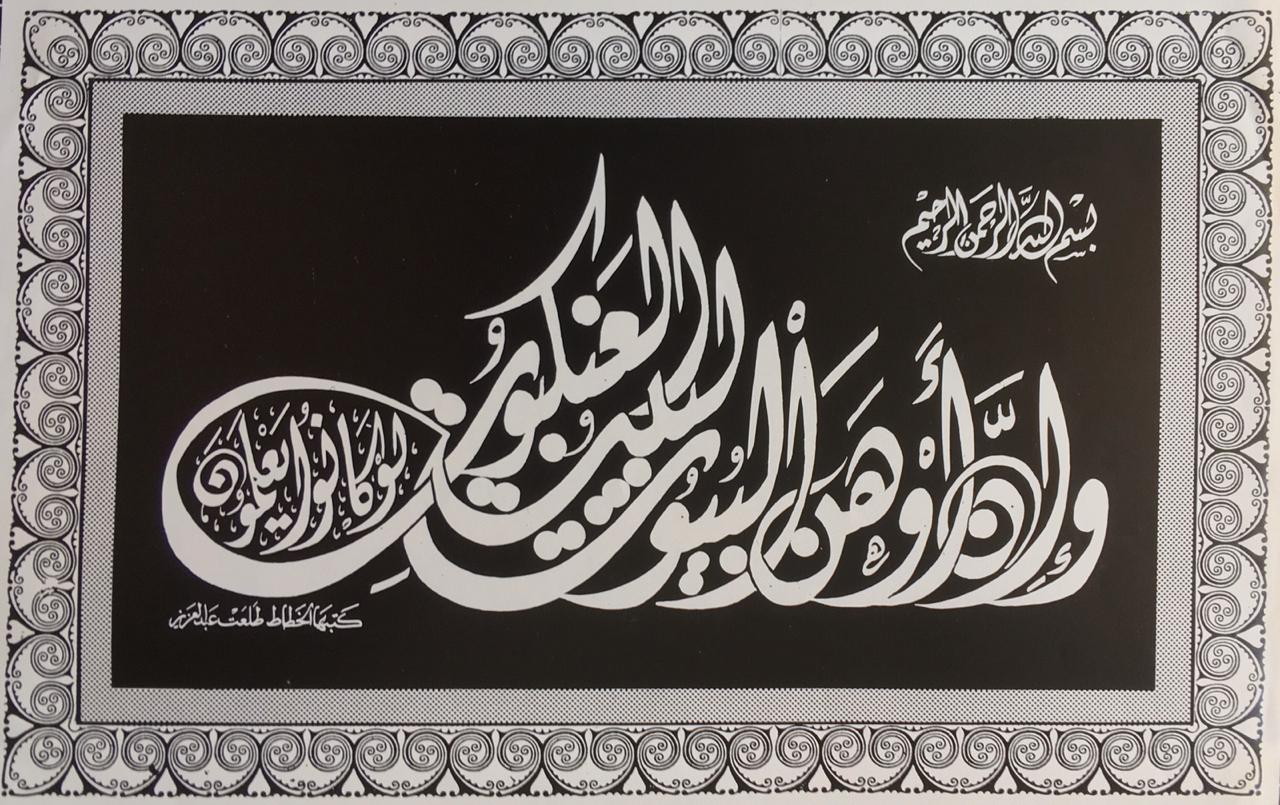 بسم الله الرحمن الرحيم
وَإِنَّ أَوْهَنَ الْبُيُوتِ لَبَيْتُ الْعَنكَبُوتِ
لَوْ كَانُوا يَعْلَمُونَ
كتبها الخطاط طلعت عبد العزيز